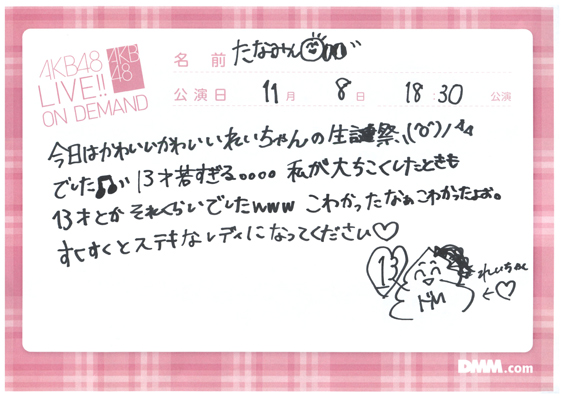 AKB48
LIVE!!
ON DEMAND
AKB
48
名 前 たなみん
公演日 11月 8日 18:30 公演
今日はかわいいかわいいれいちゃんの生誕祭\(^o^)/^^
でした♫" 13才若すぎる。。。。 私が大ちこくしたときも
13才とかそれくらいでしたwww こわかったなぁこわかったよぉ。
すくすくとステキなレディになってください♡
13
れいちゃん
←♡
DMM.com